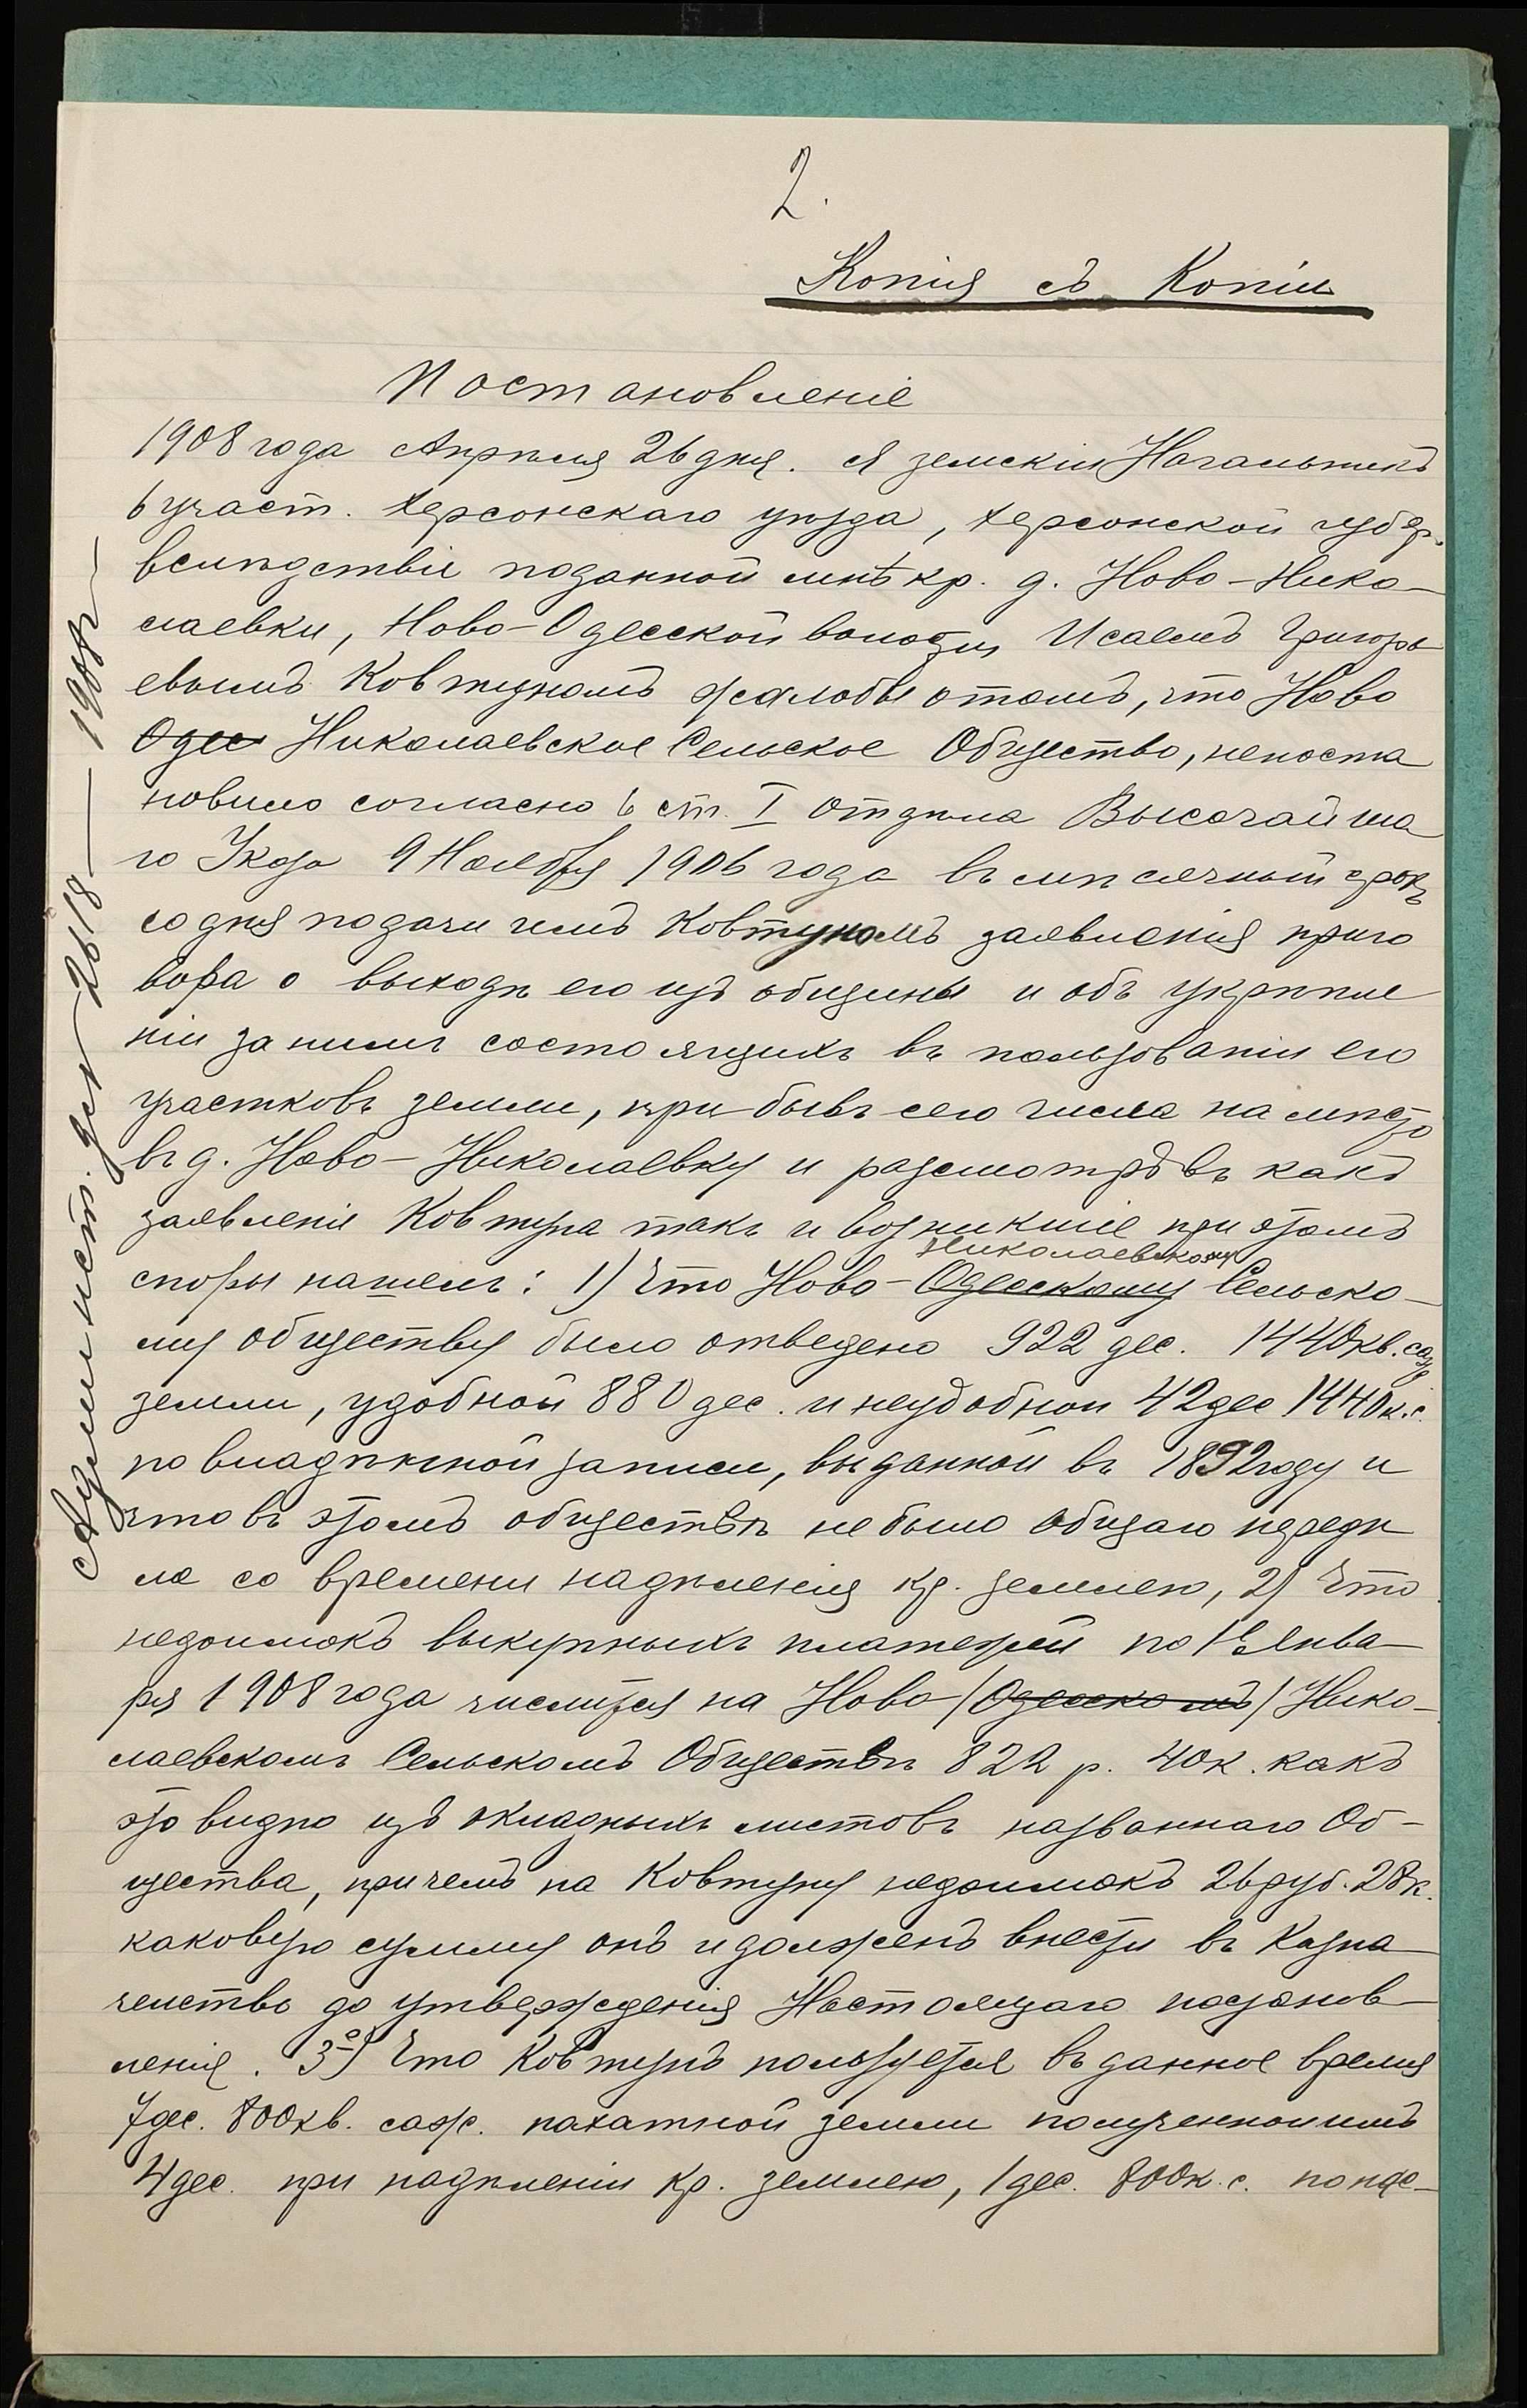 2.
Копія съ Копіи
Постановленіе
1908 года Апрѣля 26 дня. Я земскій Начальникъ
6 участ. Херсонскаго уѣзда, Херсонской губер.
вслѣдствіе поданной мнѣ кр. д. Ново-Нико-
лаевки, Ново-Одесской волости Исаемъ Григорь
евымъ Ковтуномъ жалобы отомъ, что Ново
Одес Николаевское Сельское Общество, непоста
новило согласно 6 ст. I отдѣла Высочайша
го Указа 9 Ноября 1906 года въ мѣсячный срокъ
со дня подачи имъ Ковтуномъ заявленія приго
вора о выходѣ его изъ общины и объ укрѣпле
ніи за нимъ состоящихъ въ пользованіи его
участковъ земли, при бывъ сего числа на мѣсто
въ д. Ново-Николаевку и разсмотрѣвъ какъ
заявленіе Ковтуна такъ и возникшіе при этомъ
Николаевскому
споры нашелъ: 1) Что Ново-Одесскому Сельско-
му обществу было отведено 922 дес. 1440 кв. саж
земли, удобной 880 дес. и неудобной 42 дес 1440 к.с.
по владѣнной записи, выданной въ 1892 году и
что въ этомъ обществѣ не было общаго передѣ
ла со времени надѣленія кр. землею, 2) Что
недоимокъ выкупныхъ платежей по 1е Янва-
ря 1908 года числится на Ново-(Одесскомъ) Нико-
лаевскомъ Сельскомъ Обществѣ 822 р. 40 к. какъ
это видно изъ окладныхъ листовъ названнаго Об-
щества, причемъ на Ковтуну недоимокъ 26 руб. 28 к.
каковую сумму онъ и долженъ внести въ Казна-
чейство до утвержденія Настоящаго постанов-
ленія. 3о) Что Ковтунъ пользуется въ данное время
7 дес. 800 кв. саж. пахатной земли полученной имъ
4 дес. при надѣленіи кр. землею, 1 дес. 800 к. с. по пе-
Администр. дѣл 2618 — 1908 г —